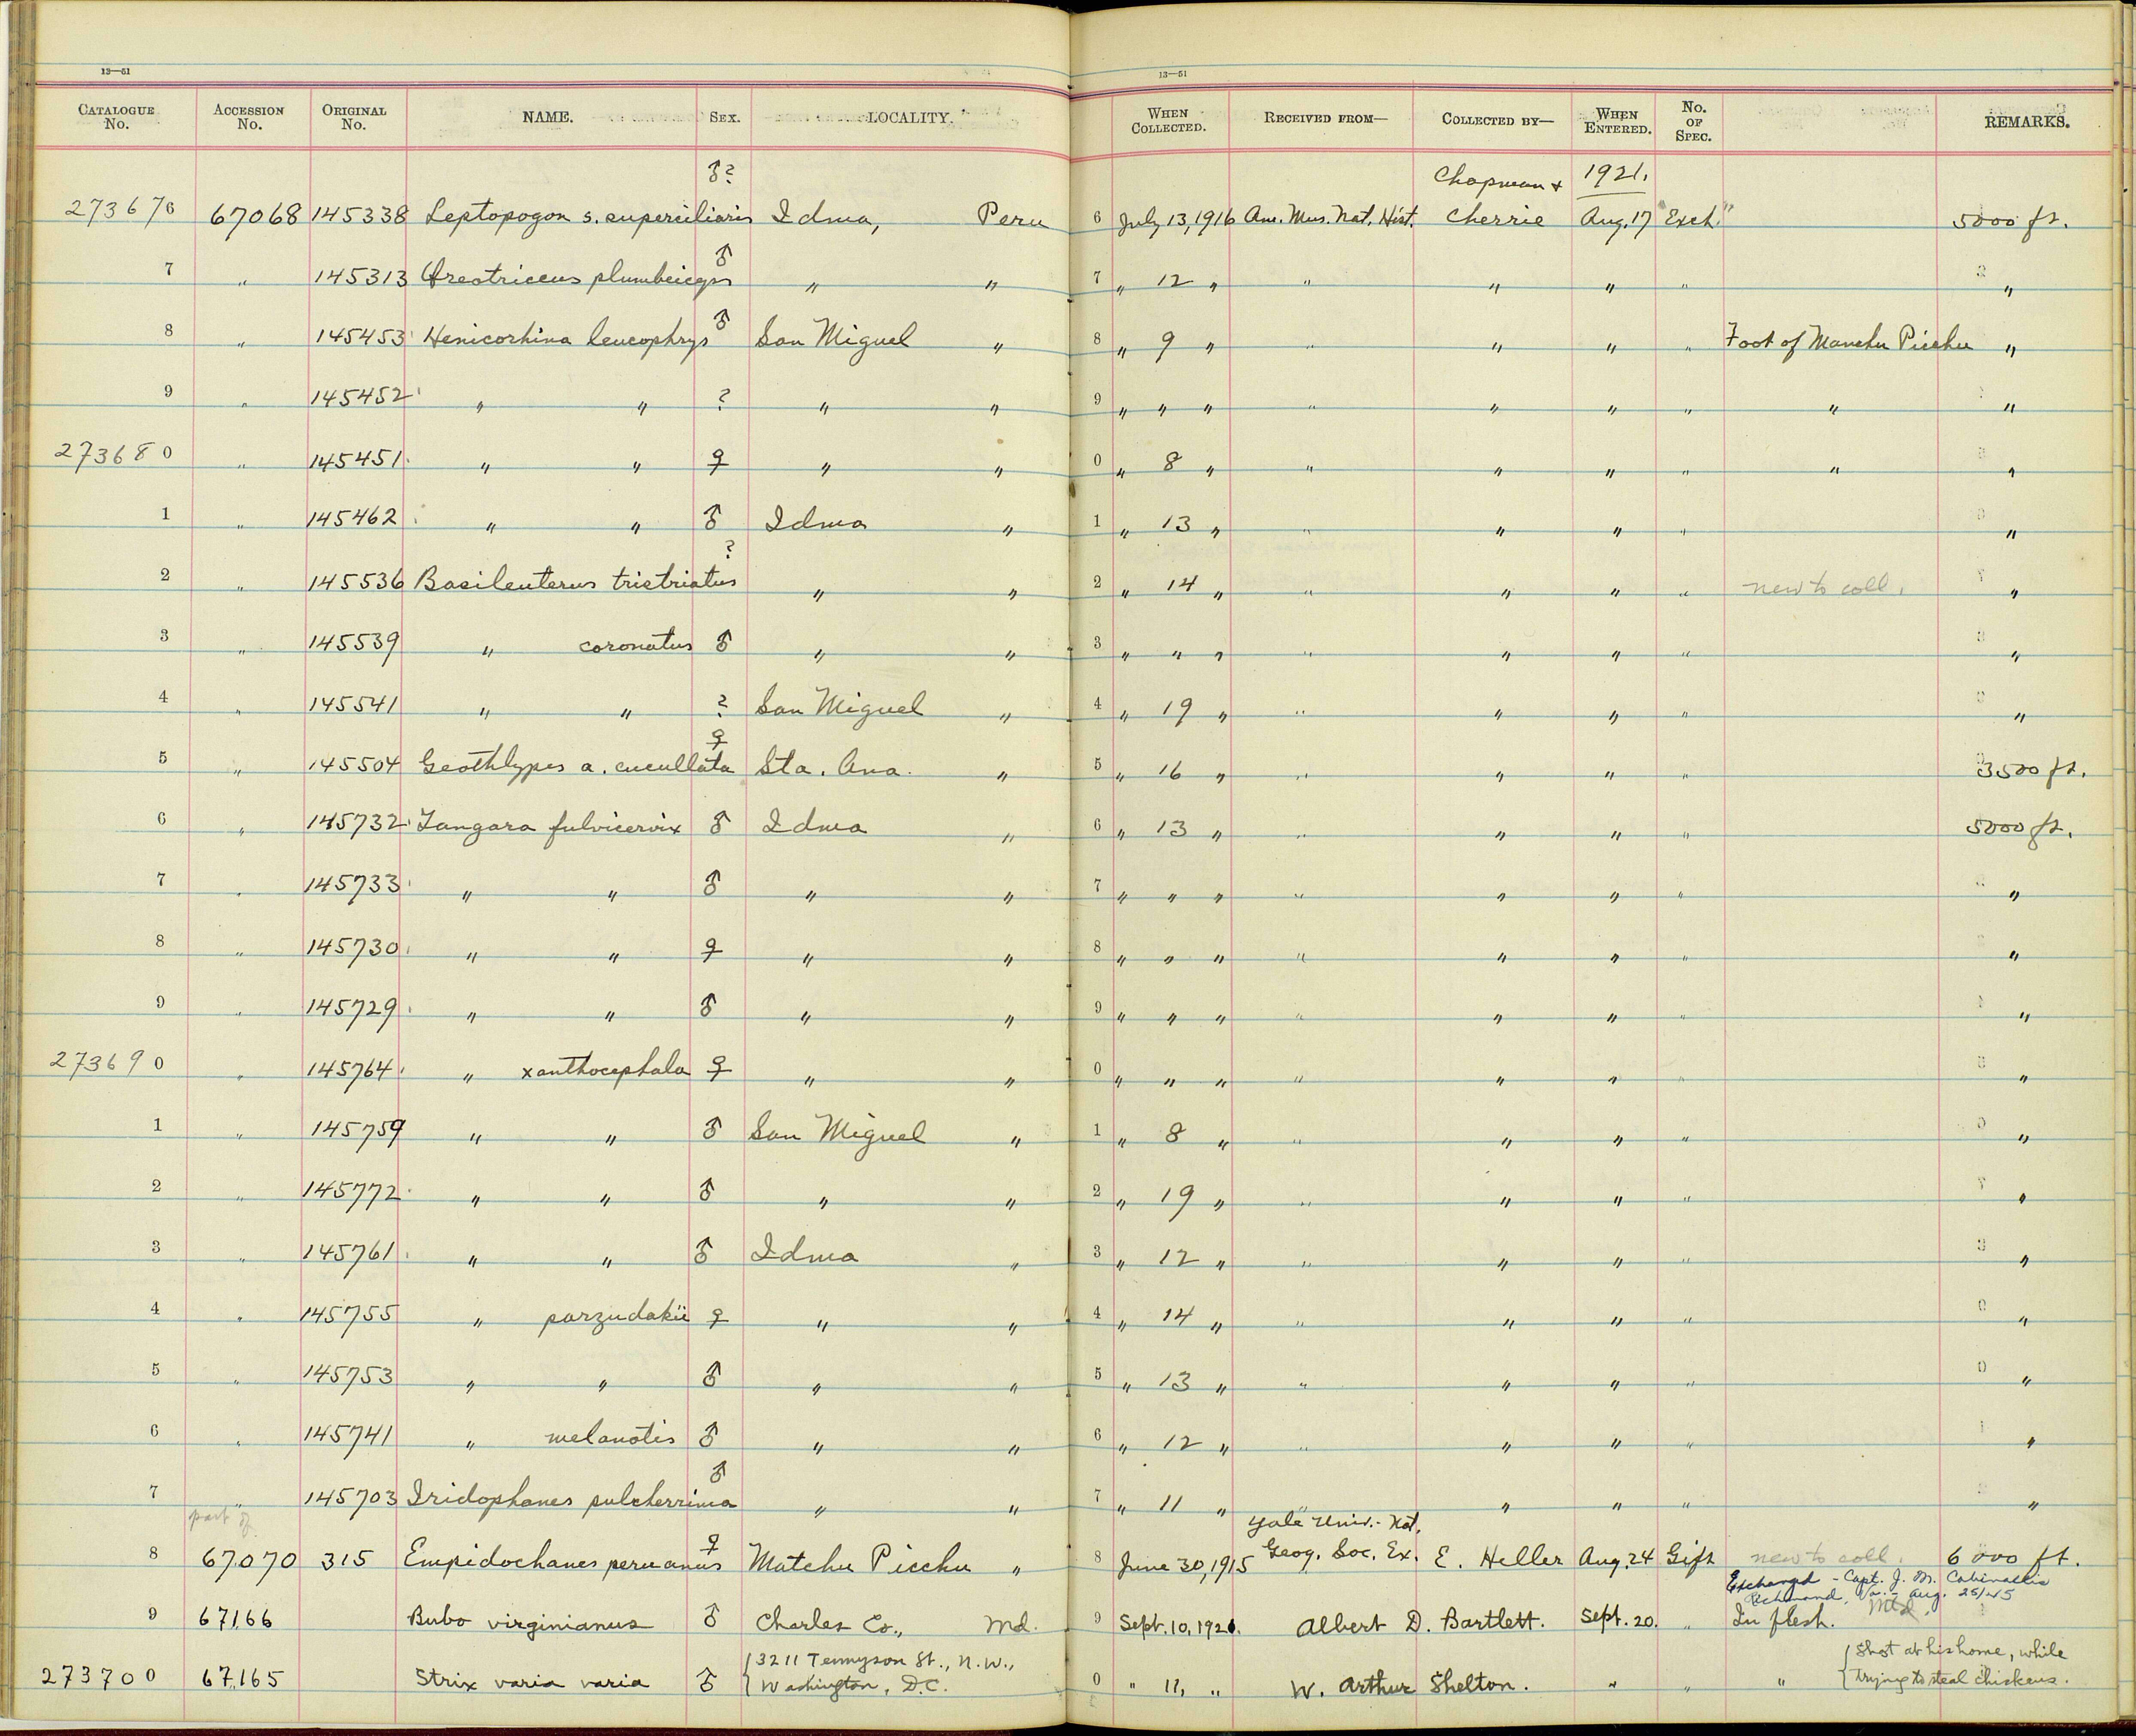 13—51
13—51
CATALOGUE No. ACCESSION No. ORIGINAL No. NAME. SEX. LOCALITY. WHEN COLLECTED. RECEIVED FROM— COLLECTED BY— WHEN ENTERED. No. OF SPEC. REMARKS.
♂? Chapman & 1921.
273676 67068 145338 Leptopogon s. superciliaris Idma, Peru 6 July 13, 1916 Am. Mus. Nat. Hist. Cherrie Aug. 17 "Exch." 5000 ft.
7 " 145313 Oreotriccus plumbeiceps ♂ " " 7 " 12 " " " " " "
8 " 145453 Henicorhina leucophrys ♂ San Miguel " 8 " 9 " " " " " Foot of Manchu Picchu "
9 " 145452 " " ? " " 9 " " " " " " " " "
273680 " 145451 " " ♀ " " 0 " 8 " " " " " " "
1 " 145462 " " ♂ Idma " 1 " 13 " " " " " "
2 " 145536 Basileuterus tristriatus ? " " 2 " 14 " " " " " new to coll. "
3 " 145539 " coronatus ♂ " " 3 " " " " " " " "
4 " 145541 " " ? San Miguel " 4 " 19 " " " " " "
5 " 145504 Geothlypis a. cucullata ♀ Sta. Ana. " 5 " 16 " " " " " 3500 ft.
6 " 145732 Tangara fulvicervix ♂ Idma " 6 " 13 " " " " " 5000 ft.
7 " 145733 " " ♂ " " 7 " " " " " " " "
8 " 145730 " " ♀ " " 8 " " " " " " " "
9 " 145729 " " ♂ " " 9 " " " " " " " "
273690 " 145764 " xanthocephala ♀ " " 0 " " " " " " " "
1 " 145759 " " ♂ San Miguel " 1 " 8 " " " " " "
2 " 145772 " " ♂ " " 2 " 19 " " " " " "
3 " 145761 " " ♂ Idma " 3 " 12 " " " " " "
4 " 145755 " parzudakii ♀ " " 4 " 14 " " " " " "
5 " 145753 " " ♂ " " 5 " 13 " " " " " "
6 " 145741 " melanotis ♂ " " 6 " 12 " " " " " "
7 " 145703 Iridophanes pulcherrima ♂ " " 7 " 11 " " " " " "
part of Yale Univ.- Nat.
8 67070 315 Empidochanes peruanus ♀ Matchu Picchu " 8 June 30, 1915 Geog. Soc. Ex. E. Heller Aug. 24 Gift new to coll. 6000 ft.
Exchanged - Capt. J. M.
Richmond, Va. - Aug. 25/45
9 67166 Bubo virginianus ♂ Charles Co., Md. 9 Sept. 10, 1921. Albert D. Bartlett. Sept. 20. " In flesh. Mtd.
{3211 Tennyson St., N.W., {Shot at his home, while
273700 67165 Strix varia varia ♂ Washington, D.C. 0 " 11, " W. Arthur Shelton. " " " trying to steal chickens.